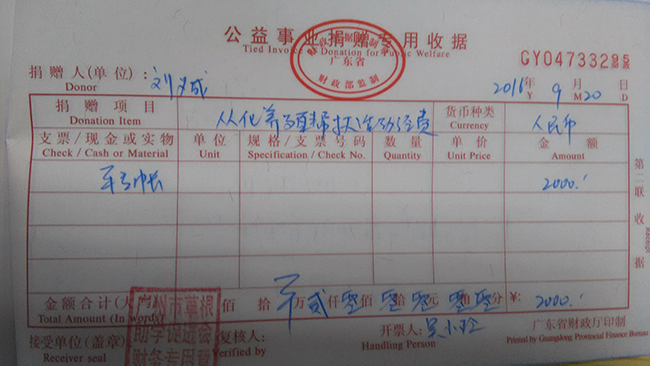 公益事业捐赠专用收据
Tied Invoice Donation for Public Welfare
广东省
财政部监制
GY04733285
捐赠人(单位): 刘
Donor
2016年 9月 20日
Y M D
捐赠项目
Donation Item
从化养 帮扶活动经费
货币种类
Currency
人民币
支票/现金或实物
Check / Cash or Material
单位
Unit
规格/支票号码
Specification / Check No.
数量
Quantity
单价
Unit Price
金额
Amount
2000.
第二联 收据
金额合计(大写) 佰 拾 万 贰仟 零佰 零拾 零元 零角 零分 ¥: 2000.
Total Amount (In words)
广州市草根
助学促进会
财务专用章
接受单位(盖章):
Receiver seal
复核人:
Verified by
开票人: 吴小
Handling Person
广东省财政厅印制
Printed by Guangdong Provincial Finance Bureau